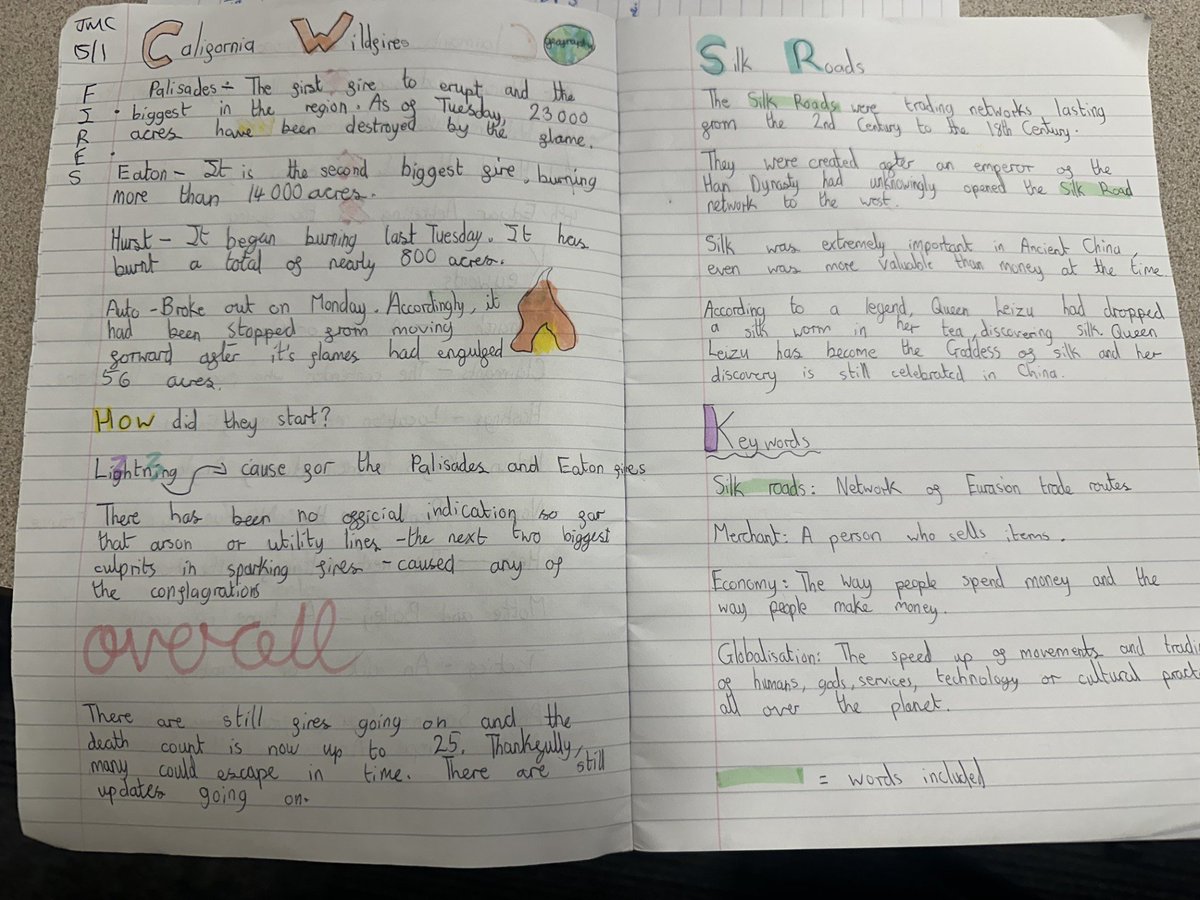 JMC
15/1
California Wildfires
geography
FIRES
Palisades÷ The first fire to erupt and the
• biggest in the region. As of Tuesday, 23 000
acres have been destroyed by the flame.
Eaton – It is the second biggest fire, burning
more than 14 000 acres.
Hurst – It began burning last Tuesday. It has
burnt a total of nearly 800 acres.
Auto – Broke out on Monday. Accordingly, it
had been stopped from moving
forward after it's flames had engulfed
56 acres.
How did they start?
Lightning → cause for the Palisades and Eaton fires
There has been no official indication so far
that arson or utility lines – the next two biggest
culprits in sparking fires – caused any of
the conflagrations
overall
There are still fires going on and the
death count is now up to 25. Thankfully,
many could escape in time. There are still
updates going on.
Silk Roads
The Silk Roads were trading networks lasting
from the 2nd Century to the 18th Century.
They were created after an emperor of the
Han Dynasty had unknowingly opened the Silk Road
network to the west.
Silk was extremely important in Ancient China,
even was more valuable than money at the time.
According to a legend, Queen Leizu had dropped
a silk worm in her tea discovering silk. Queen
Leizu has become the Goddess of silk and her
discovery is still celebrated in China.
Keywords
Silk roads: Network of Eurasion trade routes
Merchant: A person who sells items.
Economy: The way people spend money and the
way people make money.
Globalisation: The speed up of movements and tradi
of humans, gods, services, technology or cultural pract
all over the planet.
= words included